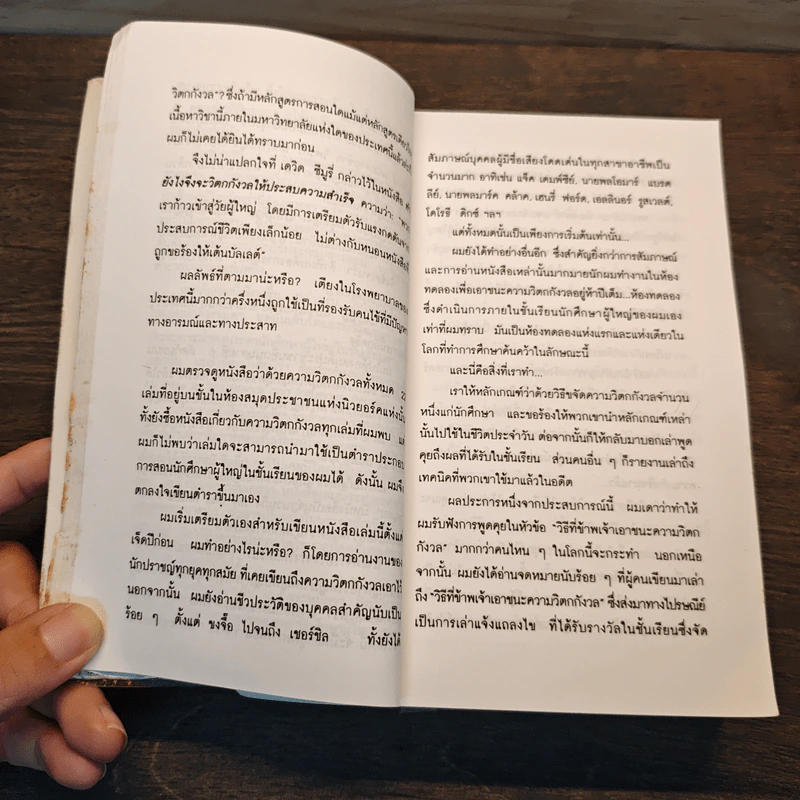 วิตกกังวล"? ซึ่งถ้ามีหลักสูตรการสอนใดแม้แต่หลักสูตรเดียว
เนื้อหาวิชานี้ภายในมหาวิทยาลัยแห่งใดของประเทศนี้แล้ว
ผมก็ไม่เคยได้ยินได้ทราบมาก่อน
จึงไม่น่าแปลกใจที่ เดวิด ซีบูรี่ กล่าวไว้ในหนังสือ
ยังไงจึงจะวิตกกังวลให้ประสบความสำเร็จ ความว่า:
เราก้าวเข้าสู่วัยผู้ใหญ่ โดยมีการเตรียมตัวรับแรงกดดัน
ประสบการณ์ชีวิตเพียงเล็กน้อย ไม่ต่างกับหนอนหนังสือ
ถูกขอร้องให้เต้นบัลเลต์"
ผลลัพธ์ที่ตามมาน่ะหรือ? เตียงในโรงพยาบาลของ
ประเทศนี้มากกว่าครึ่งหนึ่งถูกใช้เป็นที่รองรับคนไข้ที่มีปัญหา
ทางอารมณ์และทางประสาท
ผมตรวจดูหนังสือว่าด้วยความวิตกกังวลทั้งหมด 22
เล่มที่อยู่บนชั้นในห้องสมุดประชาชนแห่งนิวยอร์คแห่งนั้น
ทั้งยังซื้อหนังสือเกี่ยวกับความวิตกกังวลทุกเล่มที่ผมพบ แต่
ผมก็ไม่พบว่าเล่มใดจะสามารถนำมาใช้เป็นตำราประกอบ
การสอนนักศึกษาผู้ใหญ่ในชั้นเรียนของผมได้ ดังนั้น ผมจึง
ตกลงใจเขียนตำราขึ้นมาเอง
ผมเริ่มเตรียมตัวเองสำหรับเขียนหนังสือเล่มนี้ตั้งแต่
เจ็ดปีก่อน ผมทำอย่างไรน่ะหรือ? ก็โดยการอ่านงานของ
นักปราชญ์ทุกยุคทุกสมัย ที่เคยเขียนถึงความวิตกกังวลเอาไว้
นอกจากนั้น ผมยังอ่านชีวประวัติของบุคคลสำคัญนับเป็น
ร้อย ๆ ตั้งแต่ ขงจื๊อ ไปจนถึง เชอร์ชิล ทั้งยังได้
สัมภาษณ์บุคคลผู้มีชื่อเสียงโดดเด่นในทุกสาขาอาชีพเป็น
จำนวนมาก อาทิเช่น แจ็ค เดมพ์ซีย์, นายพลโอมาร์ แบรด
ลีย์, นายพลมาร์ค คล้าค, เฮนรี่ ฟอร์ด, เอลลินอร์ รูสเวลต์,
โดโรธี ดิกซ์ ฯลฯ
แต่ทั้งหมดนั้นเป็นเพียงการเริ่มต้นเท่านั้น...
ผมยังได้ทำอย่างอื่นอีก ซึ่งสำคัญยิ่งกว่าการสัมภาษณ์
และการอ่านหนังสือเหล่านั้นมากมายนักผมทำงานในห้อง
ทดลองเพื่อเอาชนะความวิตกกังวลอยู่ห้าปีเต็ม...ห้องทดลอง
ซึ่งดำเนินการภายในชั้นเรียนนักศึกษาผู้ใหญ่ของผมเอง
เท่าที่ผมทราบ มันเป็นห้องทดลองแห่งแรกและแห่งเดียวใน
โลกที่ทำการศึกษาค้นคว้าในลักษณะนี้
และนี่คือสิ่งที่เราทำ...
เราให้หลักเกณฑ์ว่าด้วยวิธีขจัดความวิตกกังวลจำนวน
หนึ่งแก่นักศึกษา และขอร้องให้พวกเขานำหลักเกณฑ์เหล่า
นั้นไปใช้ในชีวิตประจำวัน ต่อจากนั้นก็ให้กลับมาบอกเล่าพูด
คุยถึงผลที่ได้รับในชั้นเรียน ส่วนคนอื่น ๆ ก็รายงานเล่าถึง
เทคนิคที่พวกเขาใช้มาแล้วในอดีต
ผลประการหนึ่งจากประสบการณ์นี้ ผมเดาว่าทำให้
ผมรับฟังการพูดคุยในหัวข้อ "วิธีที่ข้าพเจ้าเอาชนะความวิตก
กังวล" มากกว่าคนไหน ๆ ในโลกนี้จะกระทำ นอกเหนือ
จากนั้น ผมยังได้อ่านจดหมายนับร้อย ๆ ที่ผู้คนเขียนมาเล่า
ถึง "วิธีที่ข้าพเจ้าเอาชนะความวิตกกังวล" ซึ่งส่งมาทางไปรษณีย์
เป็นการเล่าแจ้งแถลงไข ที่ได้รับรางวัลในชั้นเรียนซึ่งจัด